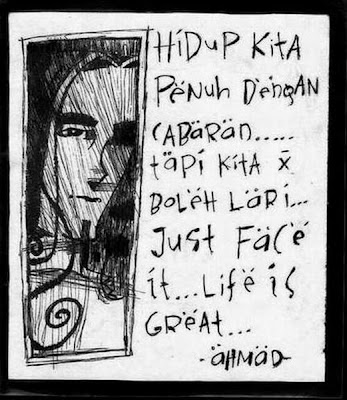 HiDuP KiTA
PENuh DENGAN
CABARAN.....
tAPi KiTA X̄
BOLEH LARi...
JuST FACE
it...LiFE iS
GREAT...
-AHMAD-